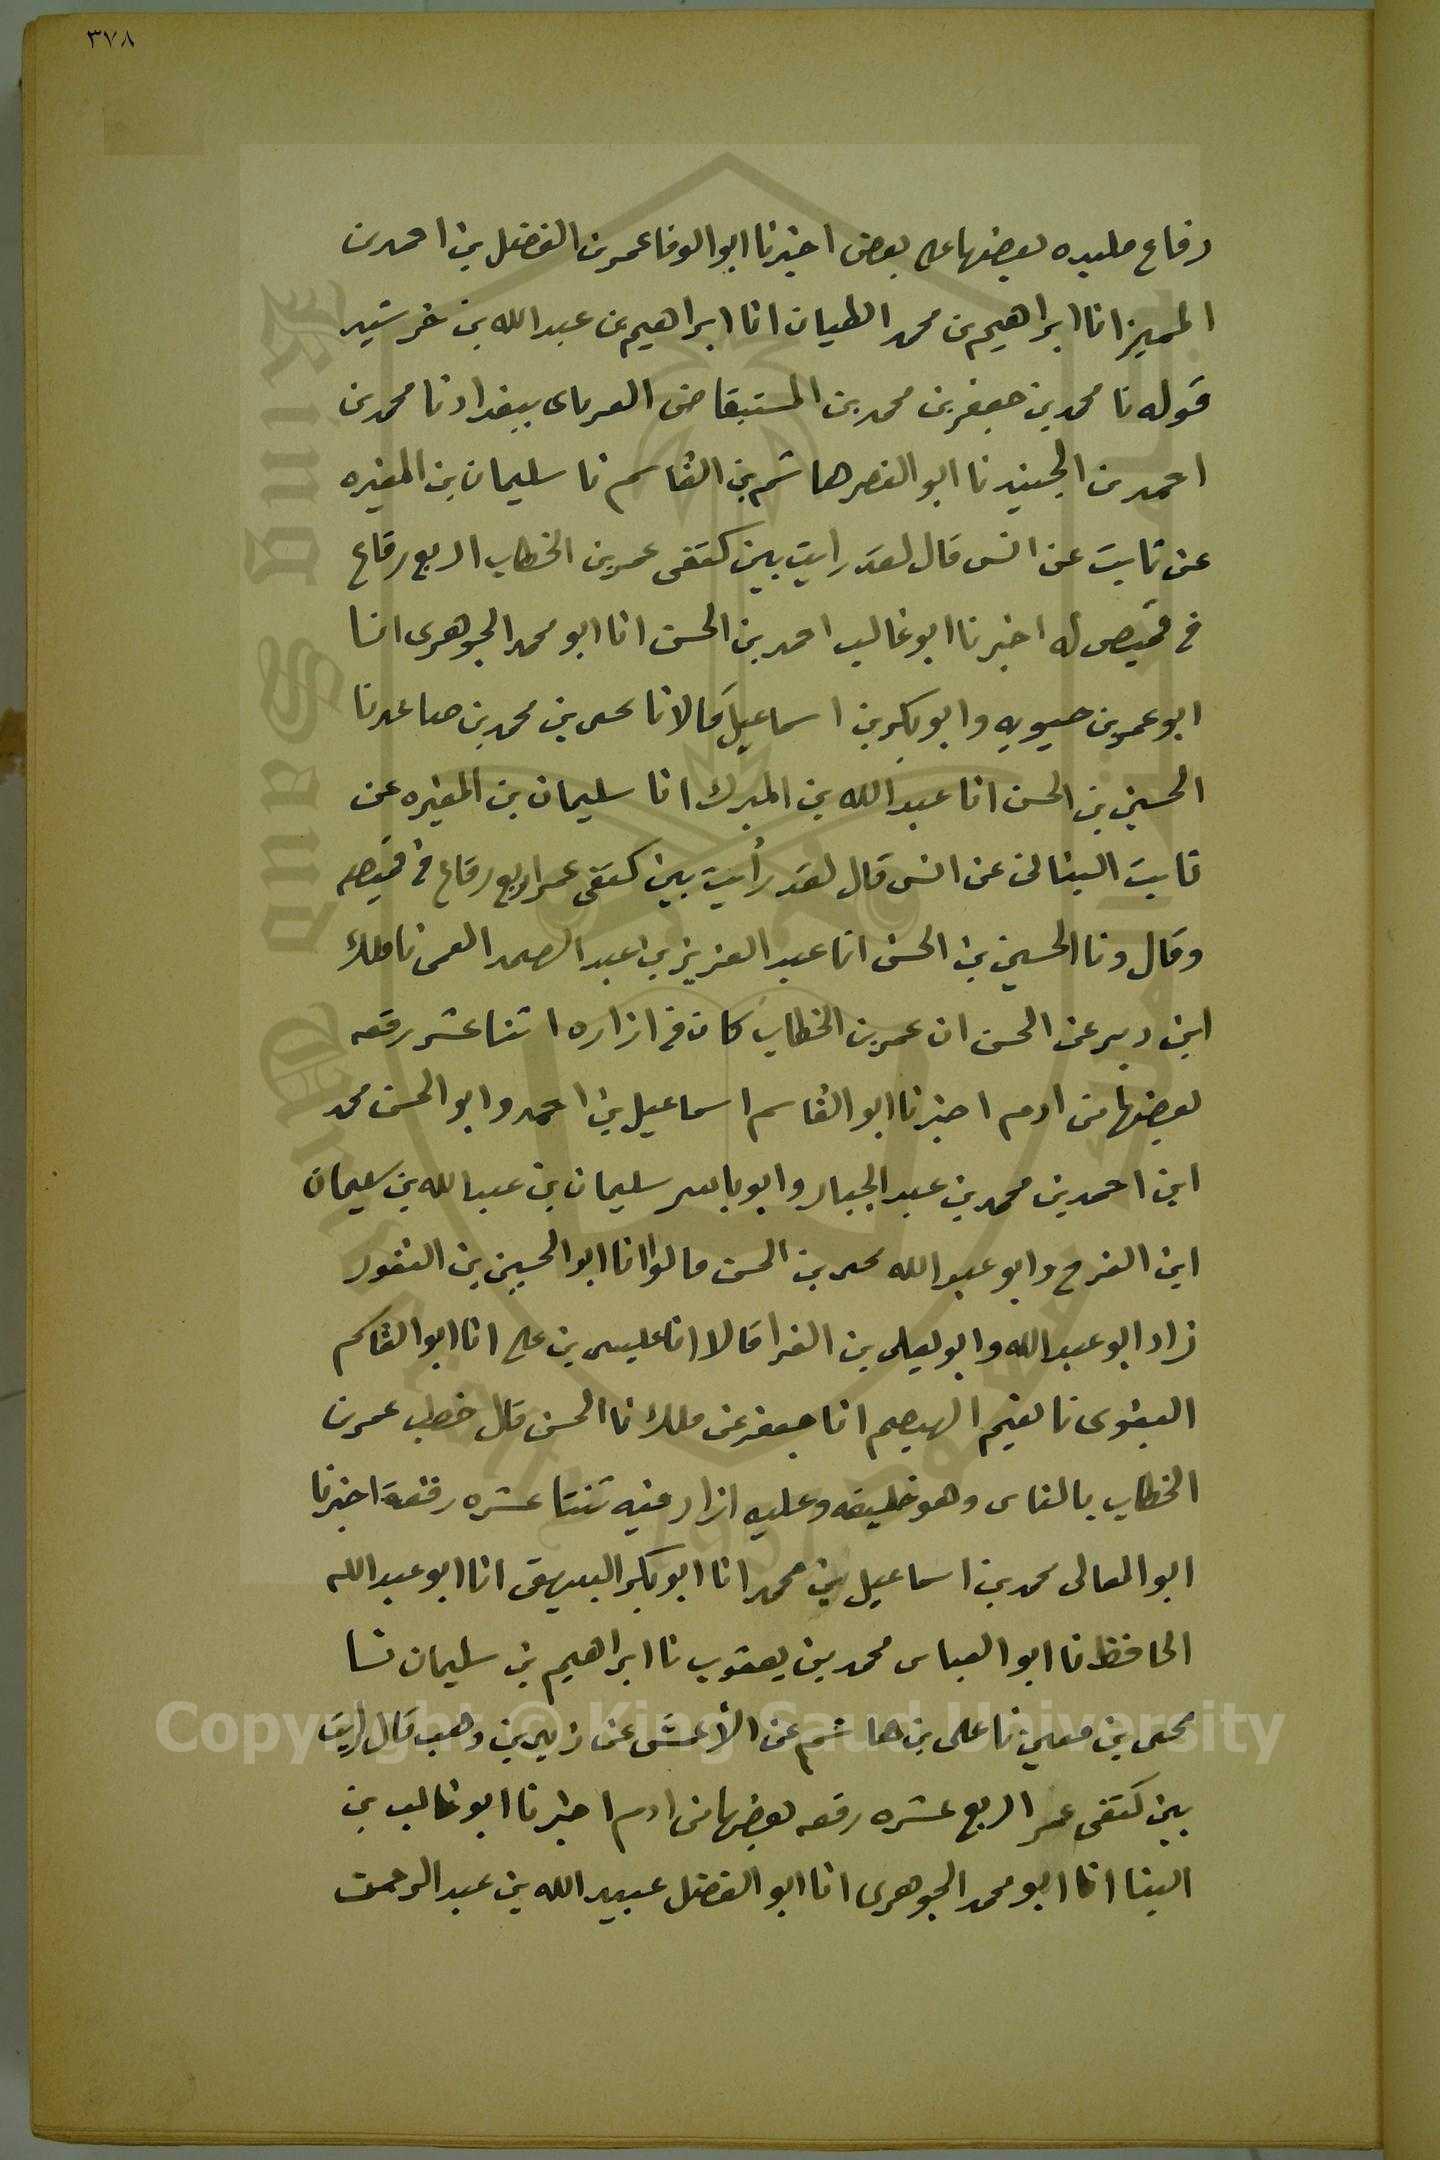 ٣٧٨
رقاع ملبده بعضها على بعض اخبرنا ابو الوفا عمر بن الفضل بن احمد بن
المميز انا ابراهيم بن محمد الطيان انا ابراهيم بن عبد الله بن خرشيد
قوله نا محمد بن جعفر بن محمد بن المستبقاض ببغداد نا محمد بن
احمد بن الجنيد نا ابو النضر هاشم بن القاسم نا سليمان بن المغيره
عن ثابت عن انس قال لقد رايت بين كتفى عمر بن الخطاب اربع رقاع
فى قميص له اخبرنا ابو غالب احمد بن الحسن انا ابو محمد الجوهرى انا
ابو عمر بن حيويه وابو بكر بن اسماعيل قالا نا يحيى بن محمد بن صاعد نا
الحسين بن الحسن انا عبد الله بن المبرك انا سليمان بن المغيره عن
ثابت البنانى عن انس قال لقد رأيت بين كتفى عمر اربع رقاع فى قميصه
وقال ونا الحسين بن الحسن انا عبد العزيز بن عبد الصمد العمى نا ملك
ابن دير عن الحسن ان عمر بن الخطاب كان فى ازاره اثنا عشر رقعه
بعضها من ادم اخبرنا ابو القاسم اسماعيل بن احمد وابو الحسن محمد
ابن احمد بن محمد بن عبد الجبار وابو ياسر سليمان بن عبد الله بن سليمان
ابن الفرج وابو عبد الله يحيى بن الحسن قالوا انا ابو الحسين بن النقور
زاد ابو عبد الله وابو يعلى بن الفرا قالا انا عيسى بن على انا ابو القاسم
البغوى نا نعيم الهيصم انا جعفر عن ملك نا الحسن قال خطب عمر بن
الخطاب بالناس وهو خليفه وعليه ازار فيه ثنتا عشره رقعة اخبرنا
ابو المعالى محمد بن اسماعيل بن محمد انا ابو بكر البيهقى انا ابو عبد الله
الحافظ نا ابو العباس محمد بن يعقوب نا ابراهيم بن سليمان نا
يحيى بن معين نا على بن هاشم عن الأعمش عن زيد بن وهب قال رايت
بين كتفى عمر اربع عشره رقعه بعضها من ادم اخبرنا ابو غالب بن
البنا انا ابو محمد الجوهرى انا ابو الفضل عبيد الله بن عبد الرحمن
Copyright © King Saud University
King Saud University